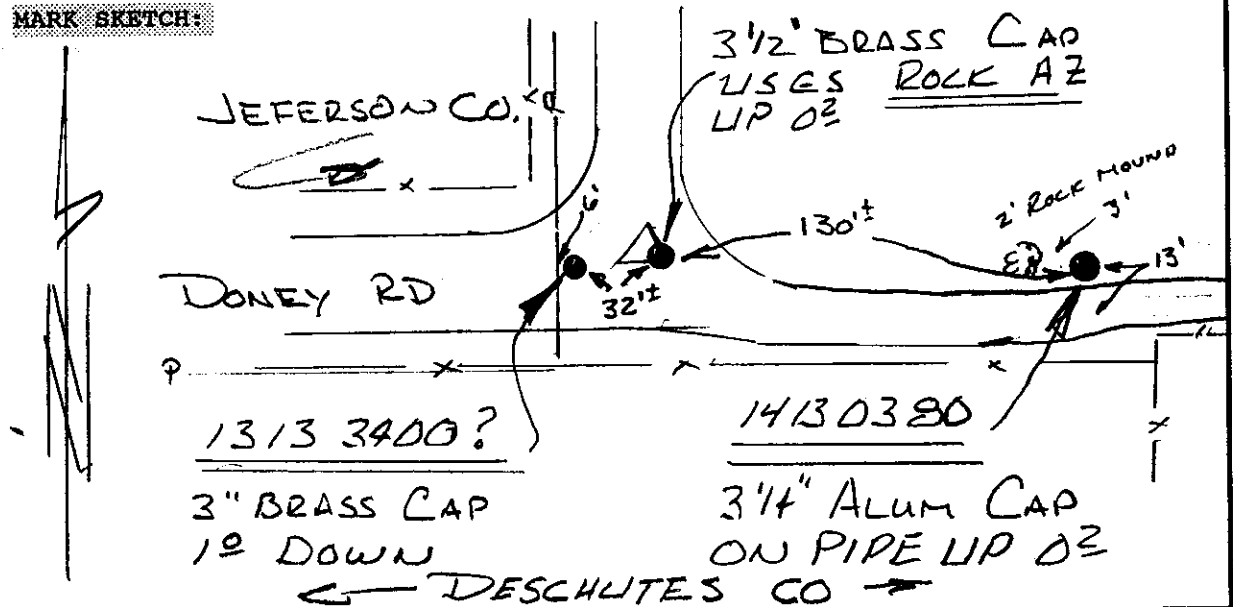 MARK SKETCH:
3 1/2" BRASS CAP
USGS ROCK AZ
UP 0²
JEFERSON CO.
2' ROCK MOUND
3'
6'
130'±
13'
32'±
DONEY RD
P
13133400?
14130380
3" BRASS CAP
1⁰ DOWN
3 1/4" ALUM CAP
ON PIPE UP 0²
← DESCHUTES CO →
N